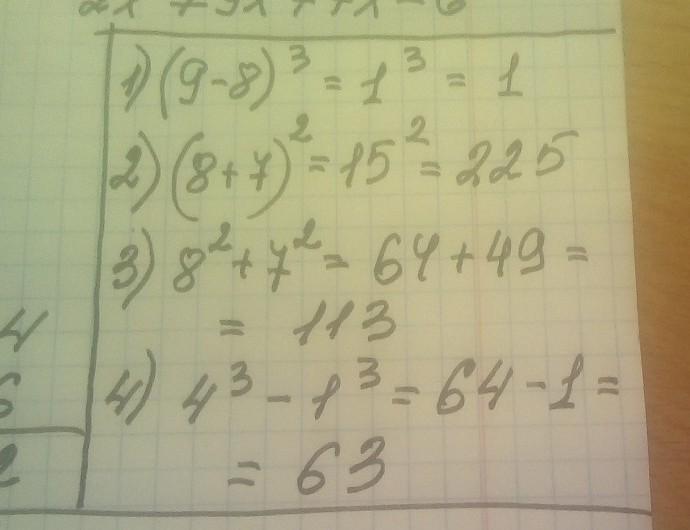 1) (9-8)³ = 1³ = 1
2) (8+7)² = 15² = 225
3) 8² + 7² = 64 + 49 =
= 113
4) 4³ - 1³ = 64 - 1 =
= 63